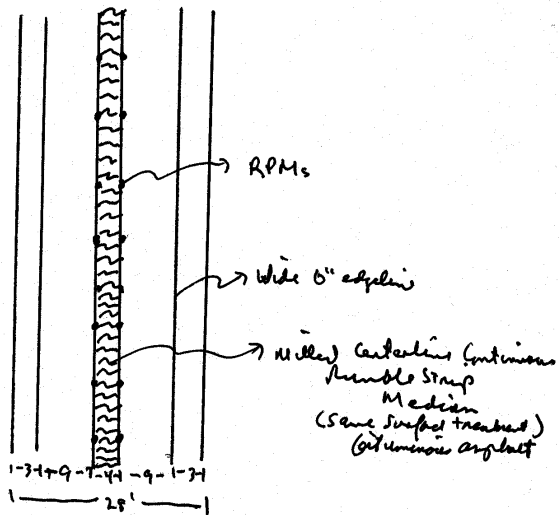 RPMs
Wide 6" edgeline
Milled Centerline Continuous
Rumble Strip
Median
(same surface treatment)
(bituminous asphalt
1-3-1-9-1-4-1-9-1-3-1
28'